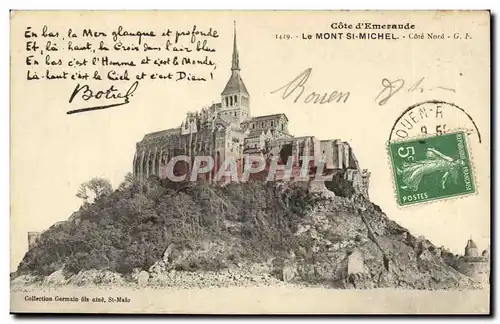 En bas, la Mer glauque et profonde
Et, là-haut, la Croix dans l'air bleu
En bas c'est l'Homme et c'est le Monde,
Là-haut c'est le Ciel et c'est Dieu!
Botrel
Côte d'Emeraude
1419. - Le MONT St-MICHEL. - Côté Nord - G. F.
Rouen
ROUEN-R
CPARAMA
5c
REPUBLIQUE FRANÇAISE
POSTES
Collection Germain fils aîné, St-Malo